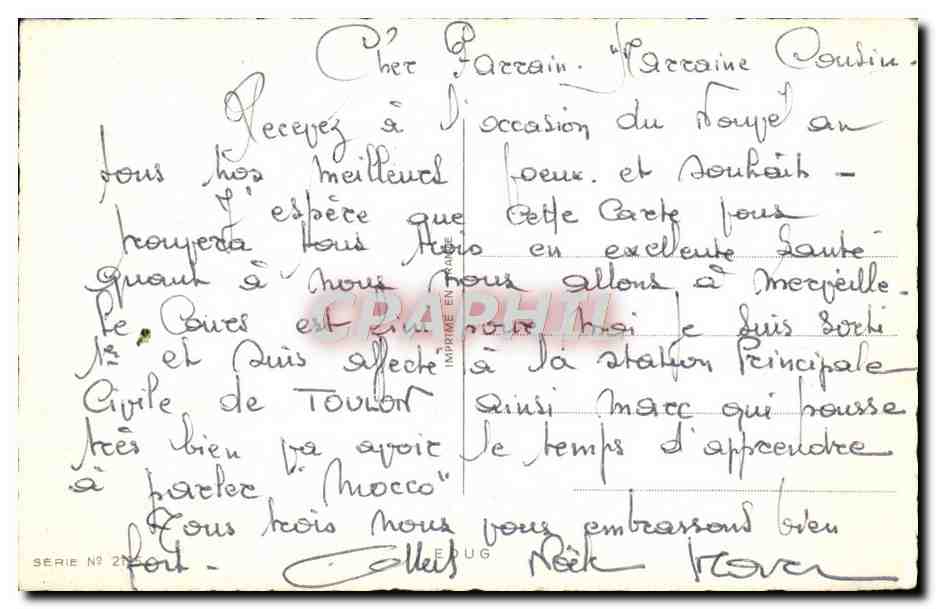 Cher Parrain. Marraine Cousin.
Recevez à l'occasion du Nouvel an
tous nos meilleurs voeux. et souhaits -
J'espère que cette carte vous
trouvera tous trois en excellente santé
quant à nous nous allons à merveille.
Le Cours est fini pour moi je suis sorti
1er et suis affecté à la station Principale
Civile de TOULON ainsi Marc qui pousse
très bien va avoir le temps d'apprendre
à parler "Mocco"
Tous trois nous vous embrassons bien
fort.
CPAPHIL
IMPRIME EN FRANCE
SERIE No 21
EDUG